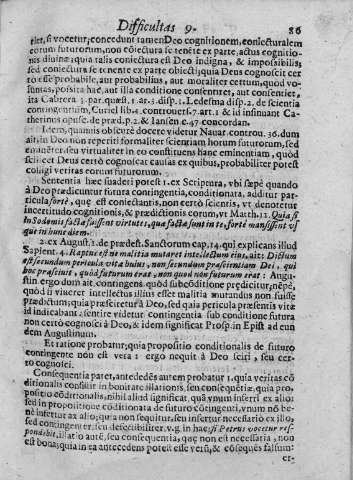 Difficultas 9. 86
riet, si vocetur; concedunt tamen Deo cognitionem, coniecturalem
eorum futurorum, non cõiectura se tenẽte ex parte, actus cognitio-
nis diuinæ; quia talis coniectura est Deo indigna, & impossibilis;
sed coniectura se tenente ex parte obiecti; quia Deus cognoscit cer-
tò esse probabile, aut probabilius, aut moraliter certum, quod vo-
luntas, posita hac, aut illa conditione consentiret, aut consentiet,
ita Cabrera 3. par. quæst. 1. ar. 3. disp. 1. Ledesma disp. 2. de scientia
contingentium, Curiel lib. 4. controuers. 7. art. 1. & id insinuant Ca-
therinus opusc. de præd. p. 2. & Iansen c. 47 concordan.
Idem, quamuis obscurè docere videtur Nauar. controu. 36. dum
ait, in Deo non reperiri formaliter scientiam horum futurorum, sed
eminẽter, seu virtualiter in eo constituens hanc eminentiam, quòd
scilicet Deus certò cognoscat causas ex quibus, probabiliter potest
colligi veritas eorum futurorum.
Sententia hæc suaderi potest 1. ex Scriptura, vbi sæpè quando
à Deo prædicuntur futura contingentia, conditionata, additur par-
ticula fortè, quę est coniectantis, non certò scientis, vt denotetur
incertitudo cognitionis, & prædictionis eorum, vt Matth. 11. Quia si
in Sodomis factæ fuissent virtutes, quæ factæ sunt in te, fortè mansissent vs-
que in hunc diem.
2. ex August. l. de prædest. Sanctorum cap. 14. qui explicans illud
Sapient. 4. Raptus est ne malitia mutaret intellectum eius, ait: Dictum
est secundum pericula vitæ huius, non secundum præscientiam Dei, qui
hoc præsciuit, quòd futurum erat, non quod non futurum erat: Augu-
stin. ergo dum ait, contingens, quòd sub cõditione prędicitur, nẽpè,
quòd si viueret intellectus illius esset malitia mutandus non fuisse
prædictum; quia præsciretur à Deo, sed quia pericula præsentis vitæ
id indicabant, sentire videtur contingentia sub conditione futura
non certò cognosci à Deo, & idem significat Prosp. in Epist ad eun
dem Augustinum.
Et ratione probatur; quia propositio conditionalis de futuro
contingente non est vera: ergo nequit à Deo sciri, seu cer-
to cognosci.
Consequentia patet, antecedẽs autem probatur 1. quia veritas cõ
ditionalis consistit in bonitate illationis, seu consequẽtiæ, quia pro-
positio cõditionalis, nihil aliud significat, quã vnum inferri ex alio;
sed in propositione cõditionata de futuro cõtingenti, vnum nõ be-
nè infertur ex alio; quia non sequitur, seu infertur necessariò ex illo,
sed contingenter, seu defectibiliter, v. g. in hac: si Petrus vocetur res-
pondebit, illatio autẽ, seu consequentia, quę non est necessaria, non
est bona; quia in ea antecedens potest esse verũ, & cõsequẽs falsum:
er-